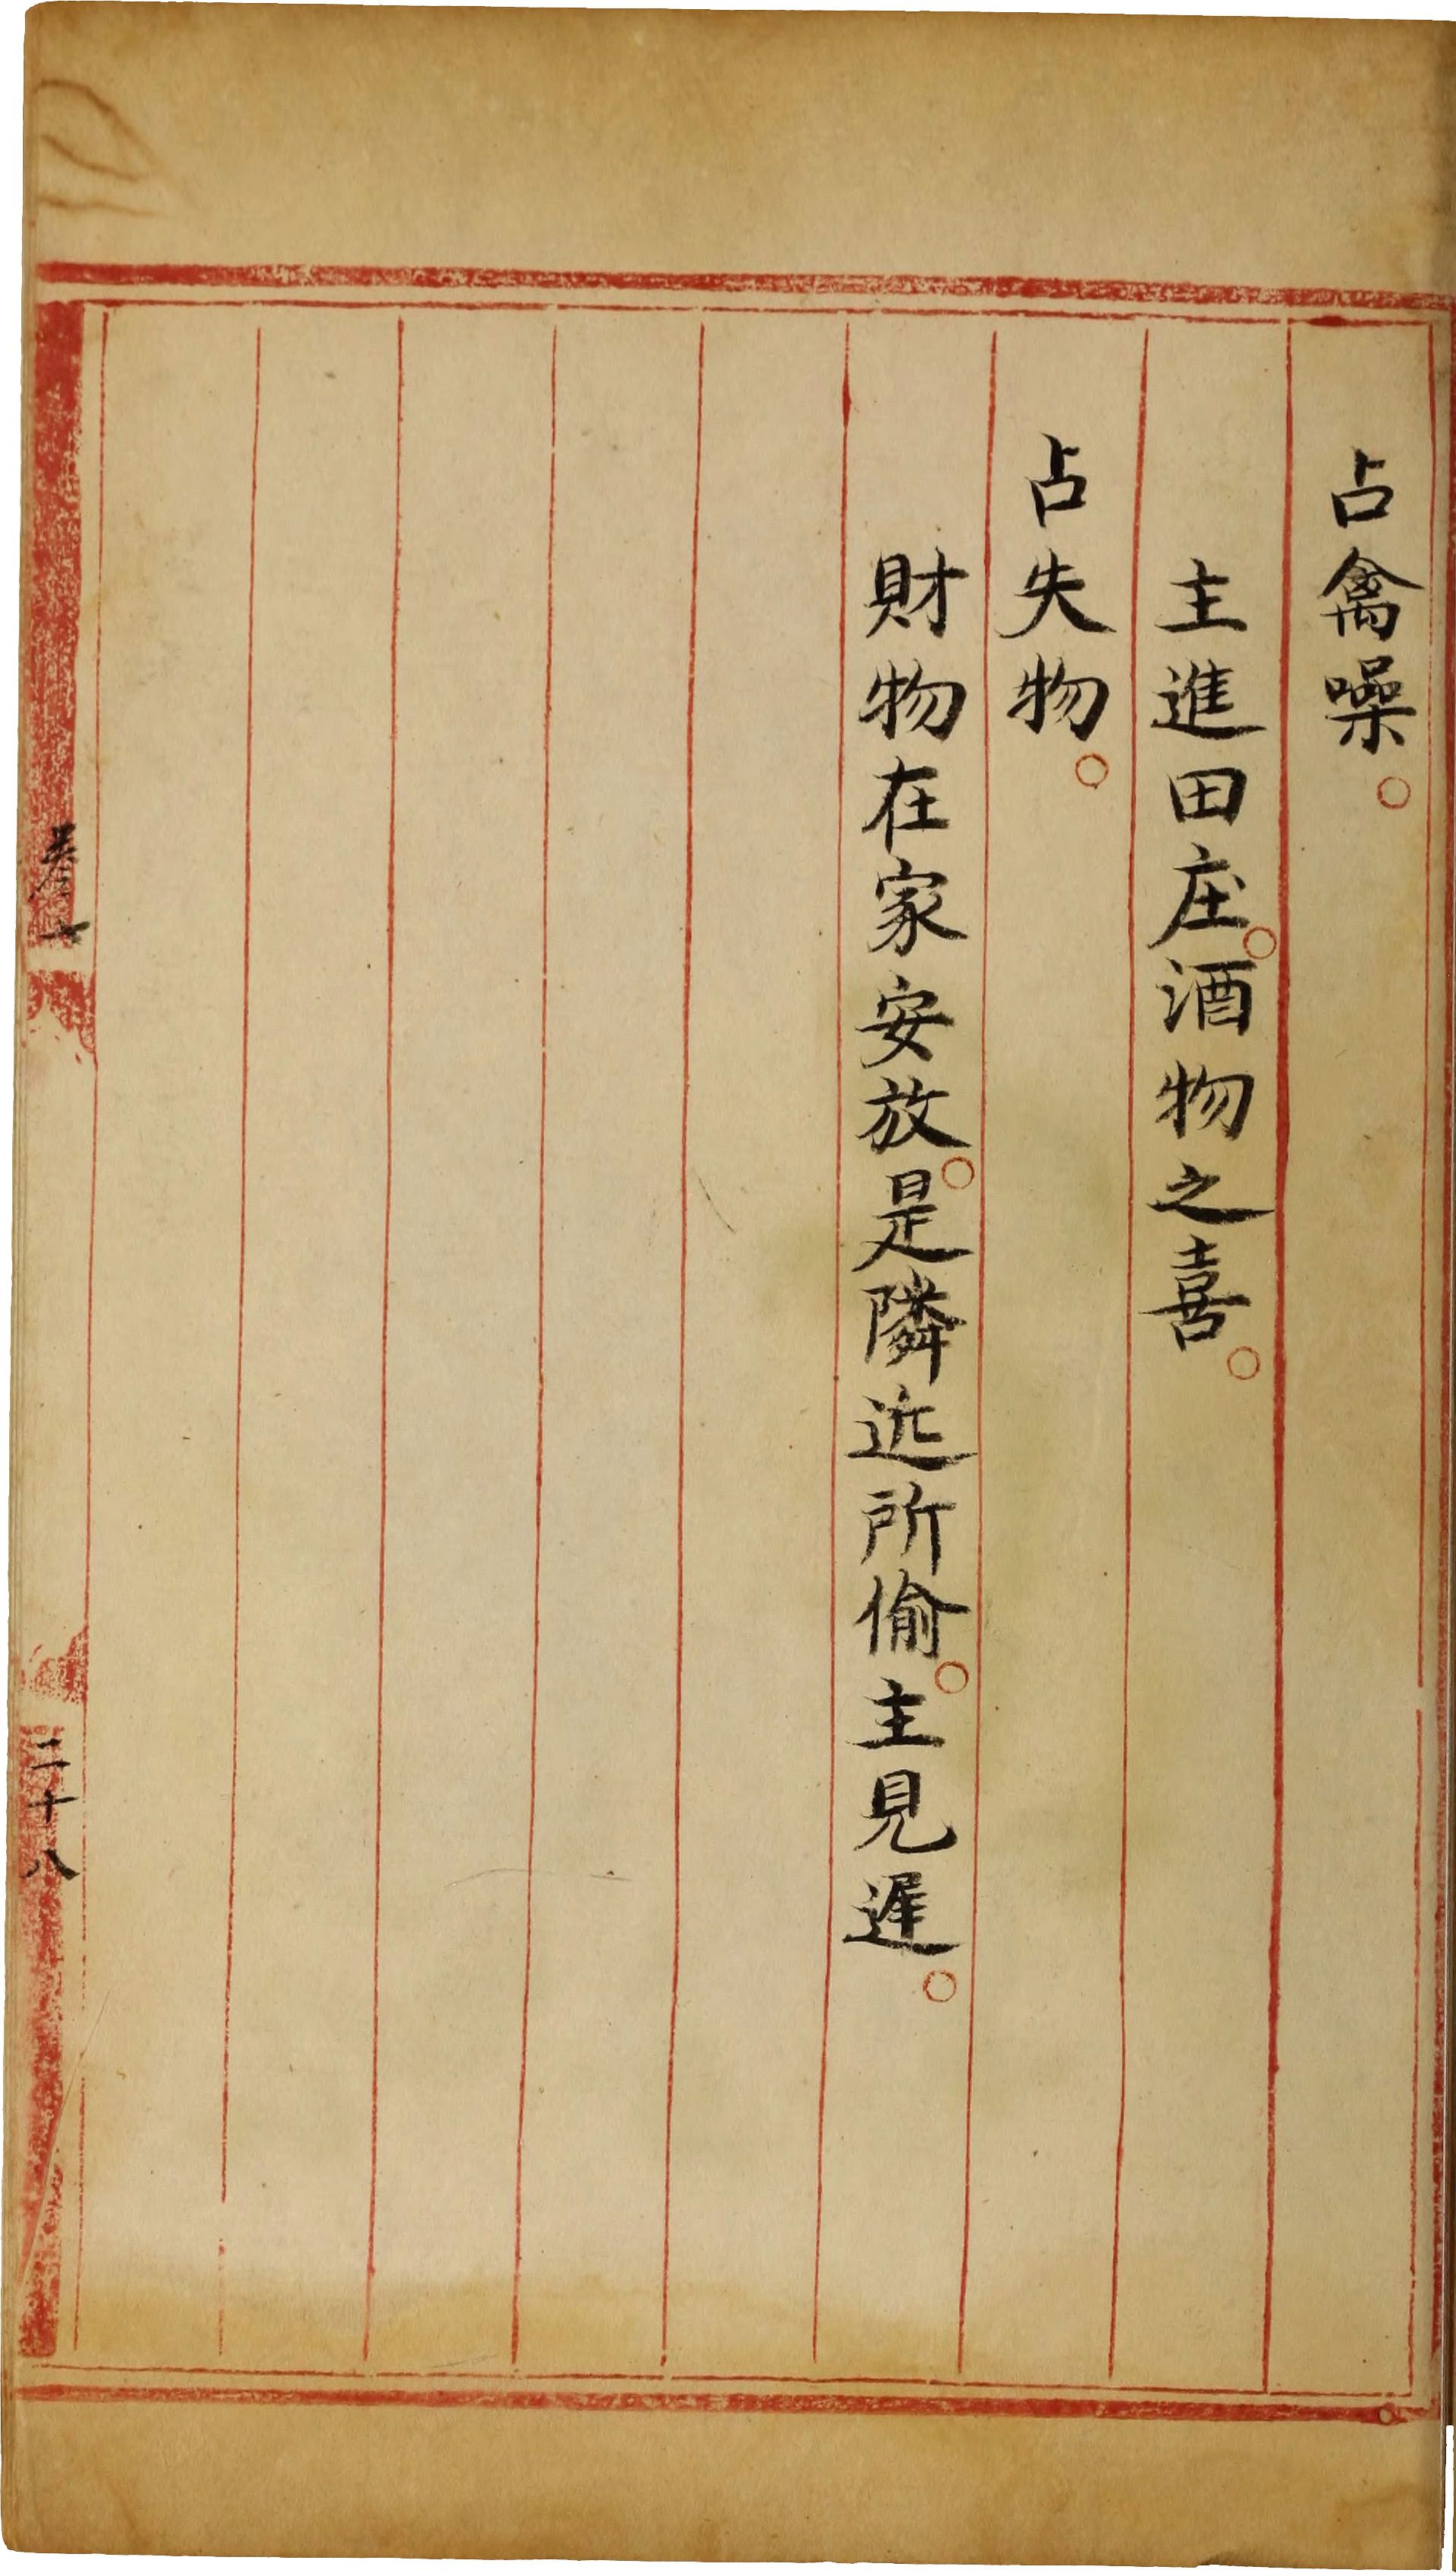 占禽噪。
主進田庄。酒物之喜。
占失物。
財物在家安放。是隣近所偷。主見遲。
卷七
二十八